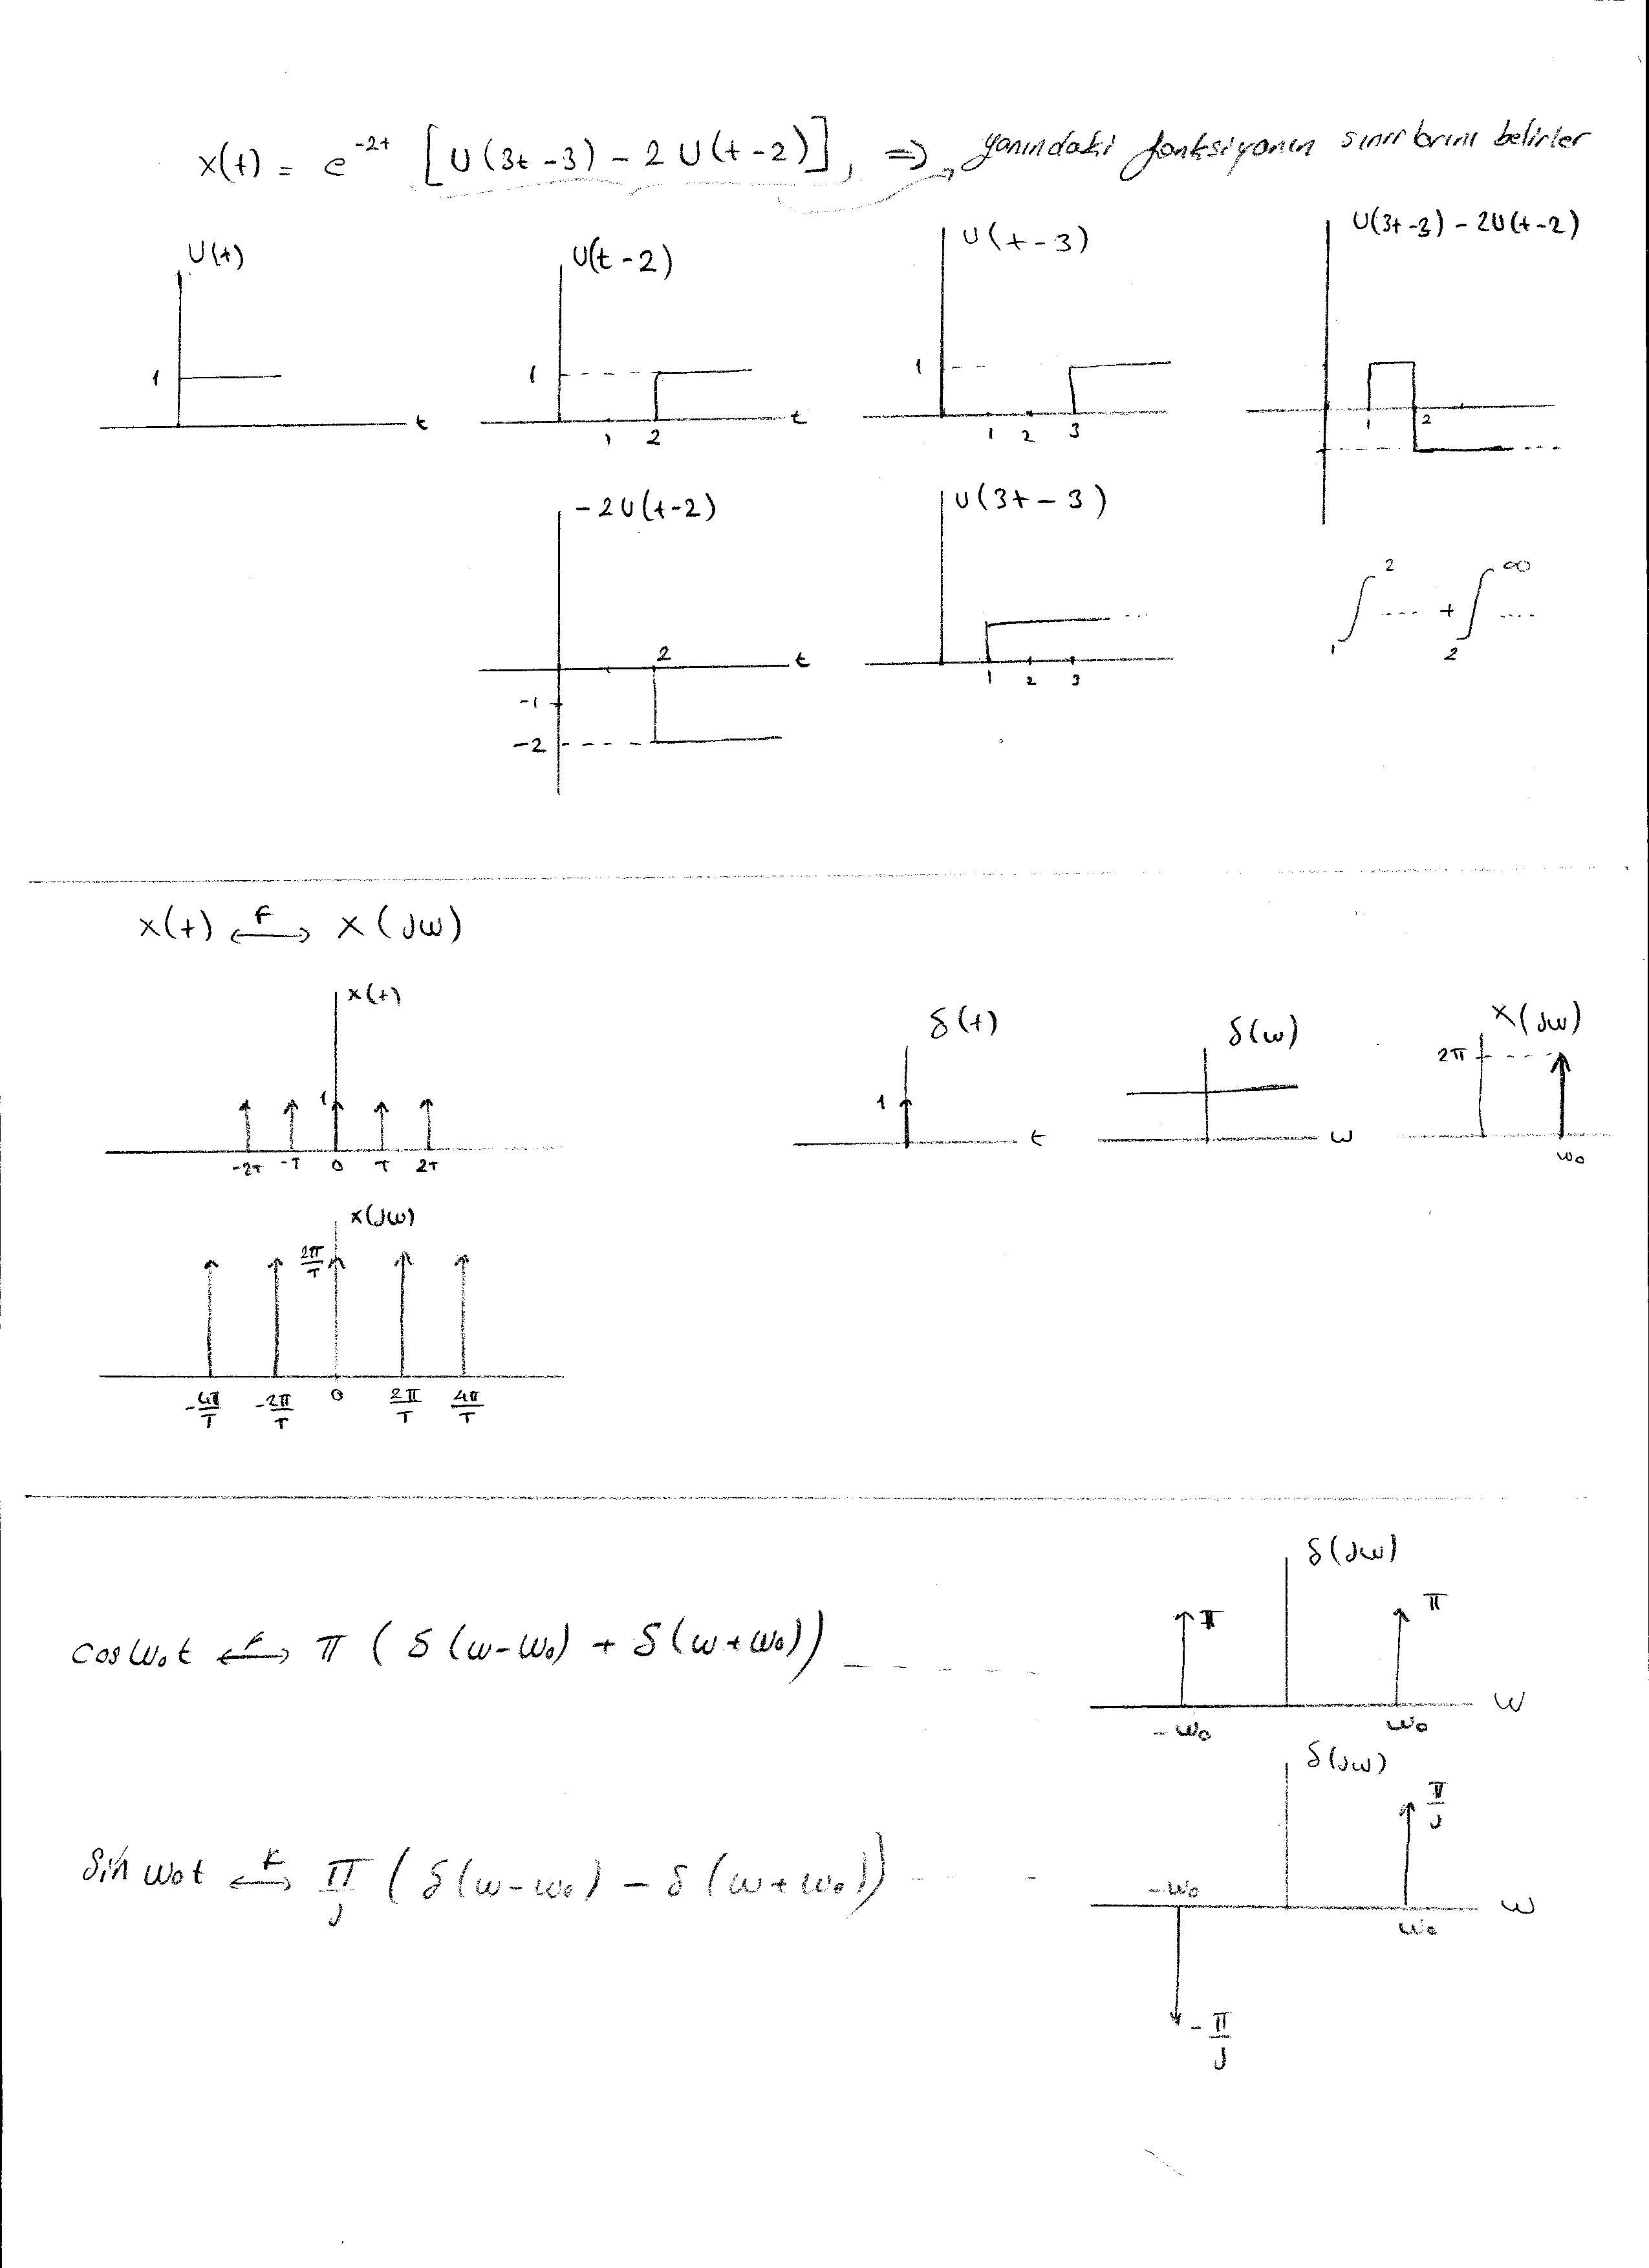 x(t) = e^-2t [U(3t-3) - 2U(t-2)], ⇒ yanındaki fonksiyonun sınırlarını belirler
U(t)
1
t
U(t-2)
1
1 2
t
U(t-3)
1
1 2 3
U(3t-3) - 2U(t-2)
1 2
-2U(t-2)
2
t
-1
-2
U(3t-3)
1 2 3
∫₁² .... + ∫₂^∞ ....
x(t) ⟷F X(jω)
x(t)
1
-2T -T 0 T 2T
δ(t)
1
t
δ(ω)
ω
X(jω)
2π
ω₀
X(jω)
2π/T
-4π/T -2π/T 0 2π/T 4π/T
cosω₀t ⟷F π (δ(ω-ω₀) + δ(ω+ω₀))
δ(jω)
π π
-ω₀ ω₀
ω
sin ω₀t ⟷F π/j (δ(ω-ω₀) - δ(ω+ω₀))
δ(jω)
π/j
-ω₀ ω₀
ω
-π/j